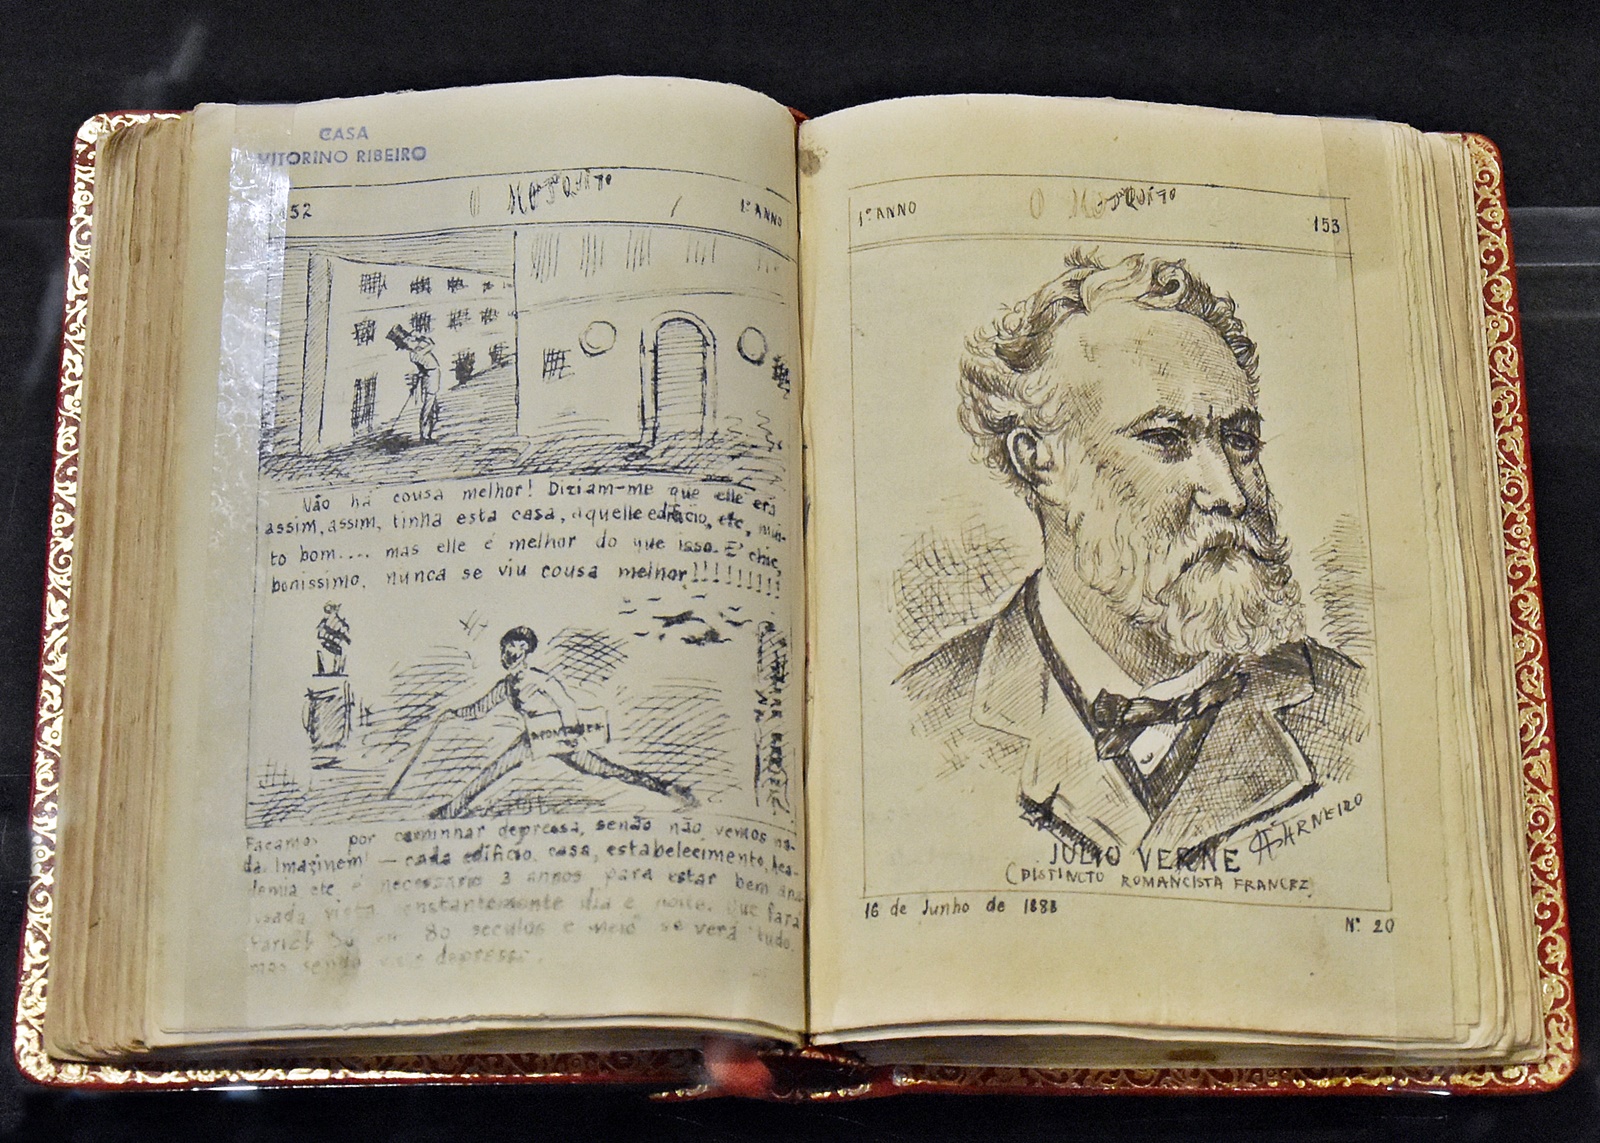 CASA
VITORINO RIBEIRO
152 O MOSQUITO 1º ANNO
Não há cousa melhor! Diziam-me que elle era
assim, assim, tinha esta casa, aquelle edificio, etc, mui-
to bom.... mas elle é melhor do que isso. E' chic,
bonissimo, nunca se viu cousa melhor!!!!!!!!!
Façamos por caminhar depressa, senão não vemos na-
da. Imaginem! — cada edificio, casa, estabelecimento, Aca-
demia etc, é necessario 3 annos para estar bem
vista constantemente dia e noite. Que fará
Só em 80 seculos e meio se verá tudo,
mas sendo depressa.
1º ANNO O MOSQUITO 153
CARNEIRO
JULIO VERNE
(DISTINCTO ROMANCISTA FRANCEZ)
16 de Junho de 1888
Nº 20